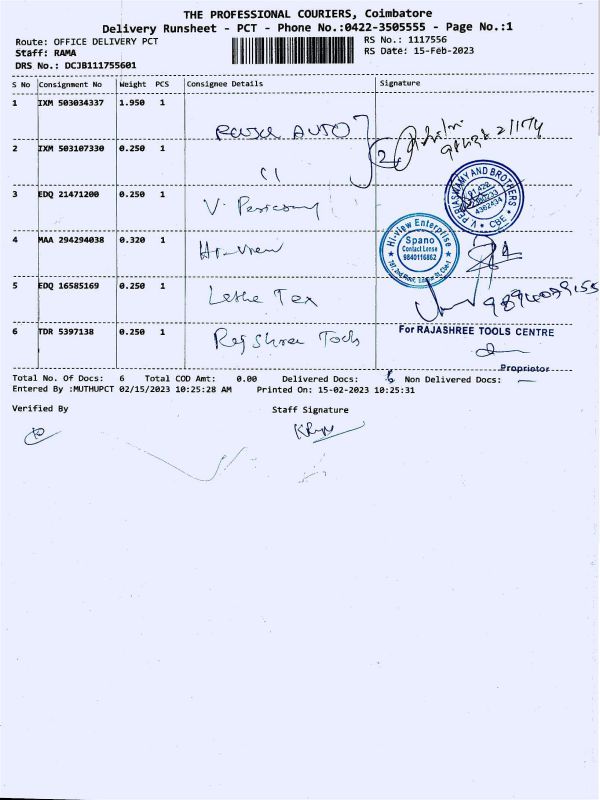 THE PROFESSIONAL COURIERS, Coimbatore
Delivery Runsheet - PCT - Phone No.:0422-3505555 - Page No.:1
Route: OFFICE DELIVERY PCT
RS No.: 1117556
Staff: RAMA
RS Date: 15-Feb-2023
DRS No.: DCJB111755601
S No Consignment No Weight PCS Consignee Details Signature
1 IXM 503034337 1.950 1
AUTO
2 IXM 503107330 0.250 1
2
3 EDQ 21471200 0.250 1
V.
V. PERIASWAMY AND BROTHERS
4362434
★ CBE ★
4 MAA 294294038 0.320 1
Hi-view
Hi-view Enterprise
Spano
Contact Lense
9840116862
5 EDQ 16585169 0.250 1
Tex
6 TDR 5397138 0.250 1
Rajshree Tools
For RAJASHREE TOOLS CENTRE
Proprietor
Total No. Of Docs: 6 Total COD Amt: 0.00 Delivered Docs: 6 Non Delivered Docs: —
Entered By :MUTHUPCT 02/15/2023 10:25:28 AM Printed On: 15-02-2023 10:25:31
Verified By Staff Signature